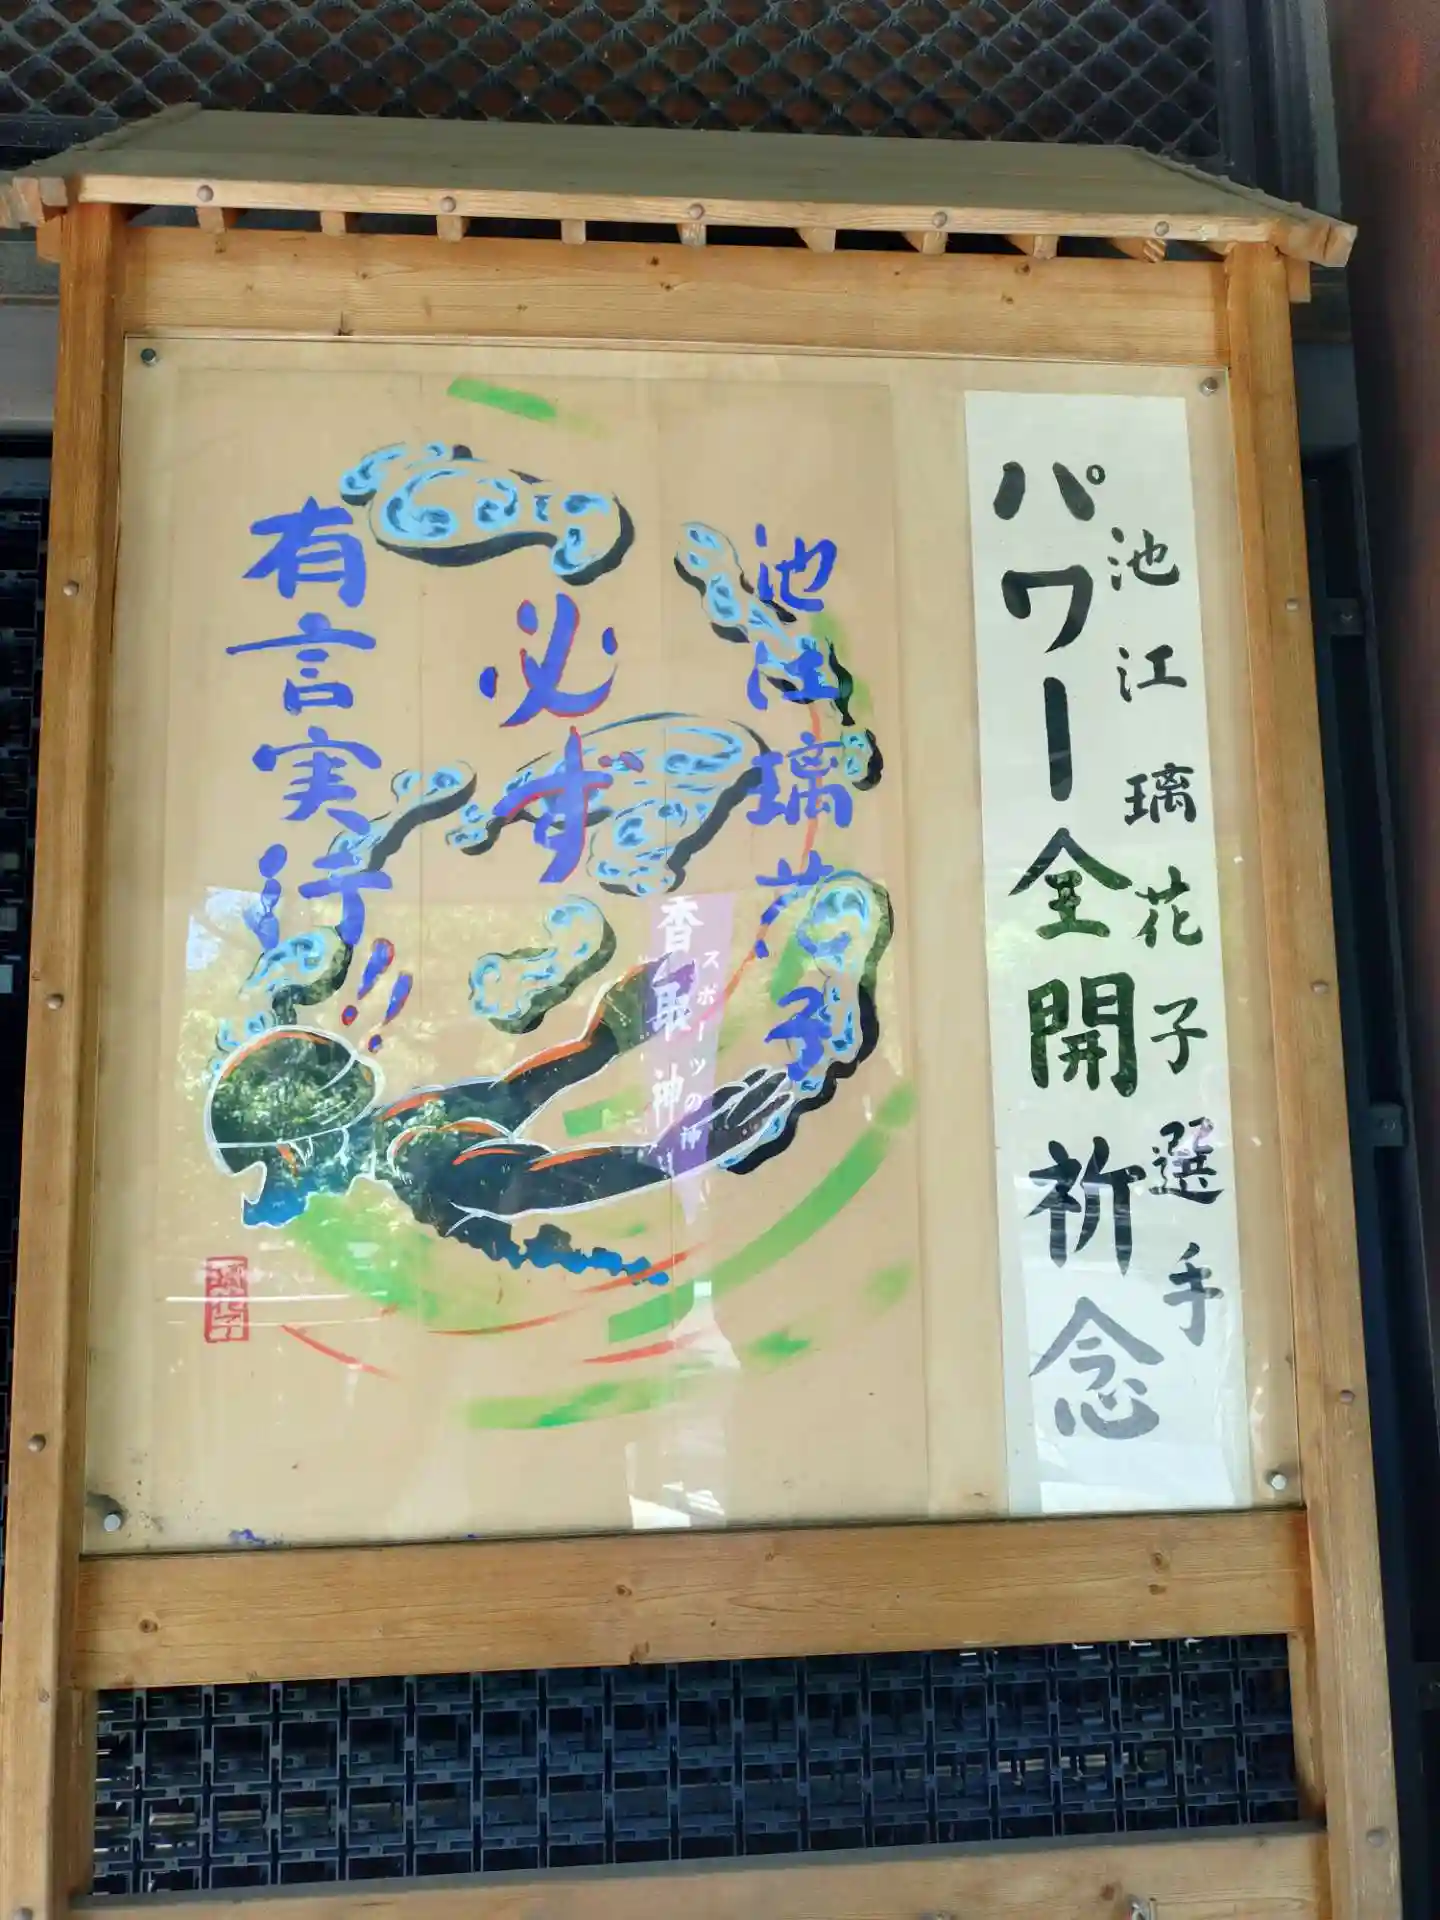 池江璃花子選手
パワー全開祈念
池江璃花子
必ず
有言実行!!
スポーツの神
香取神